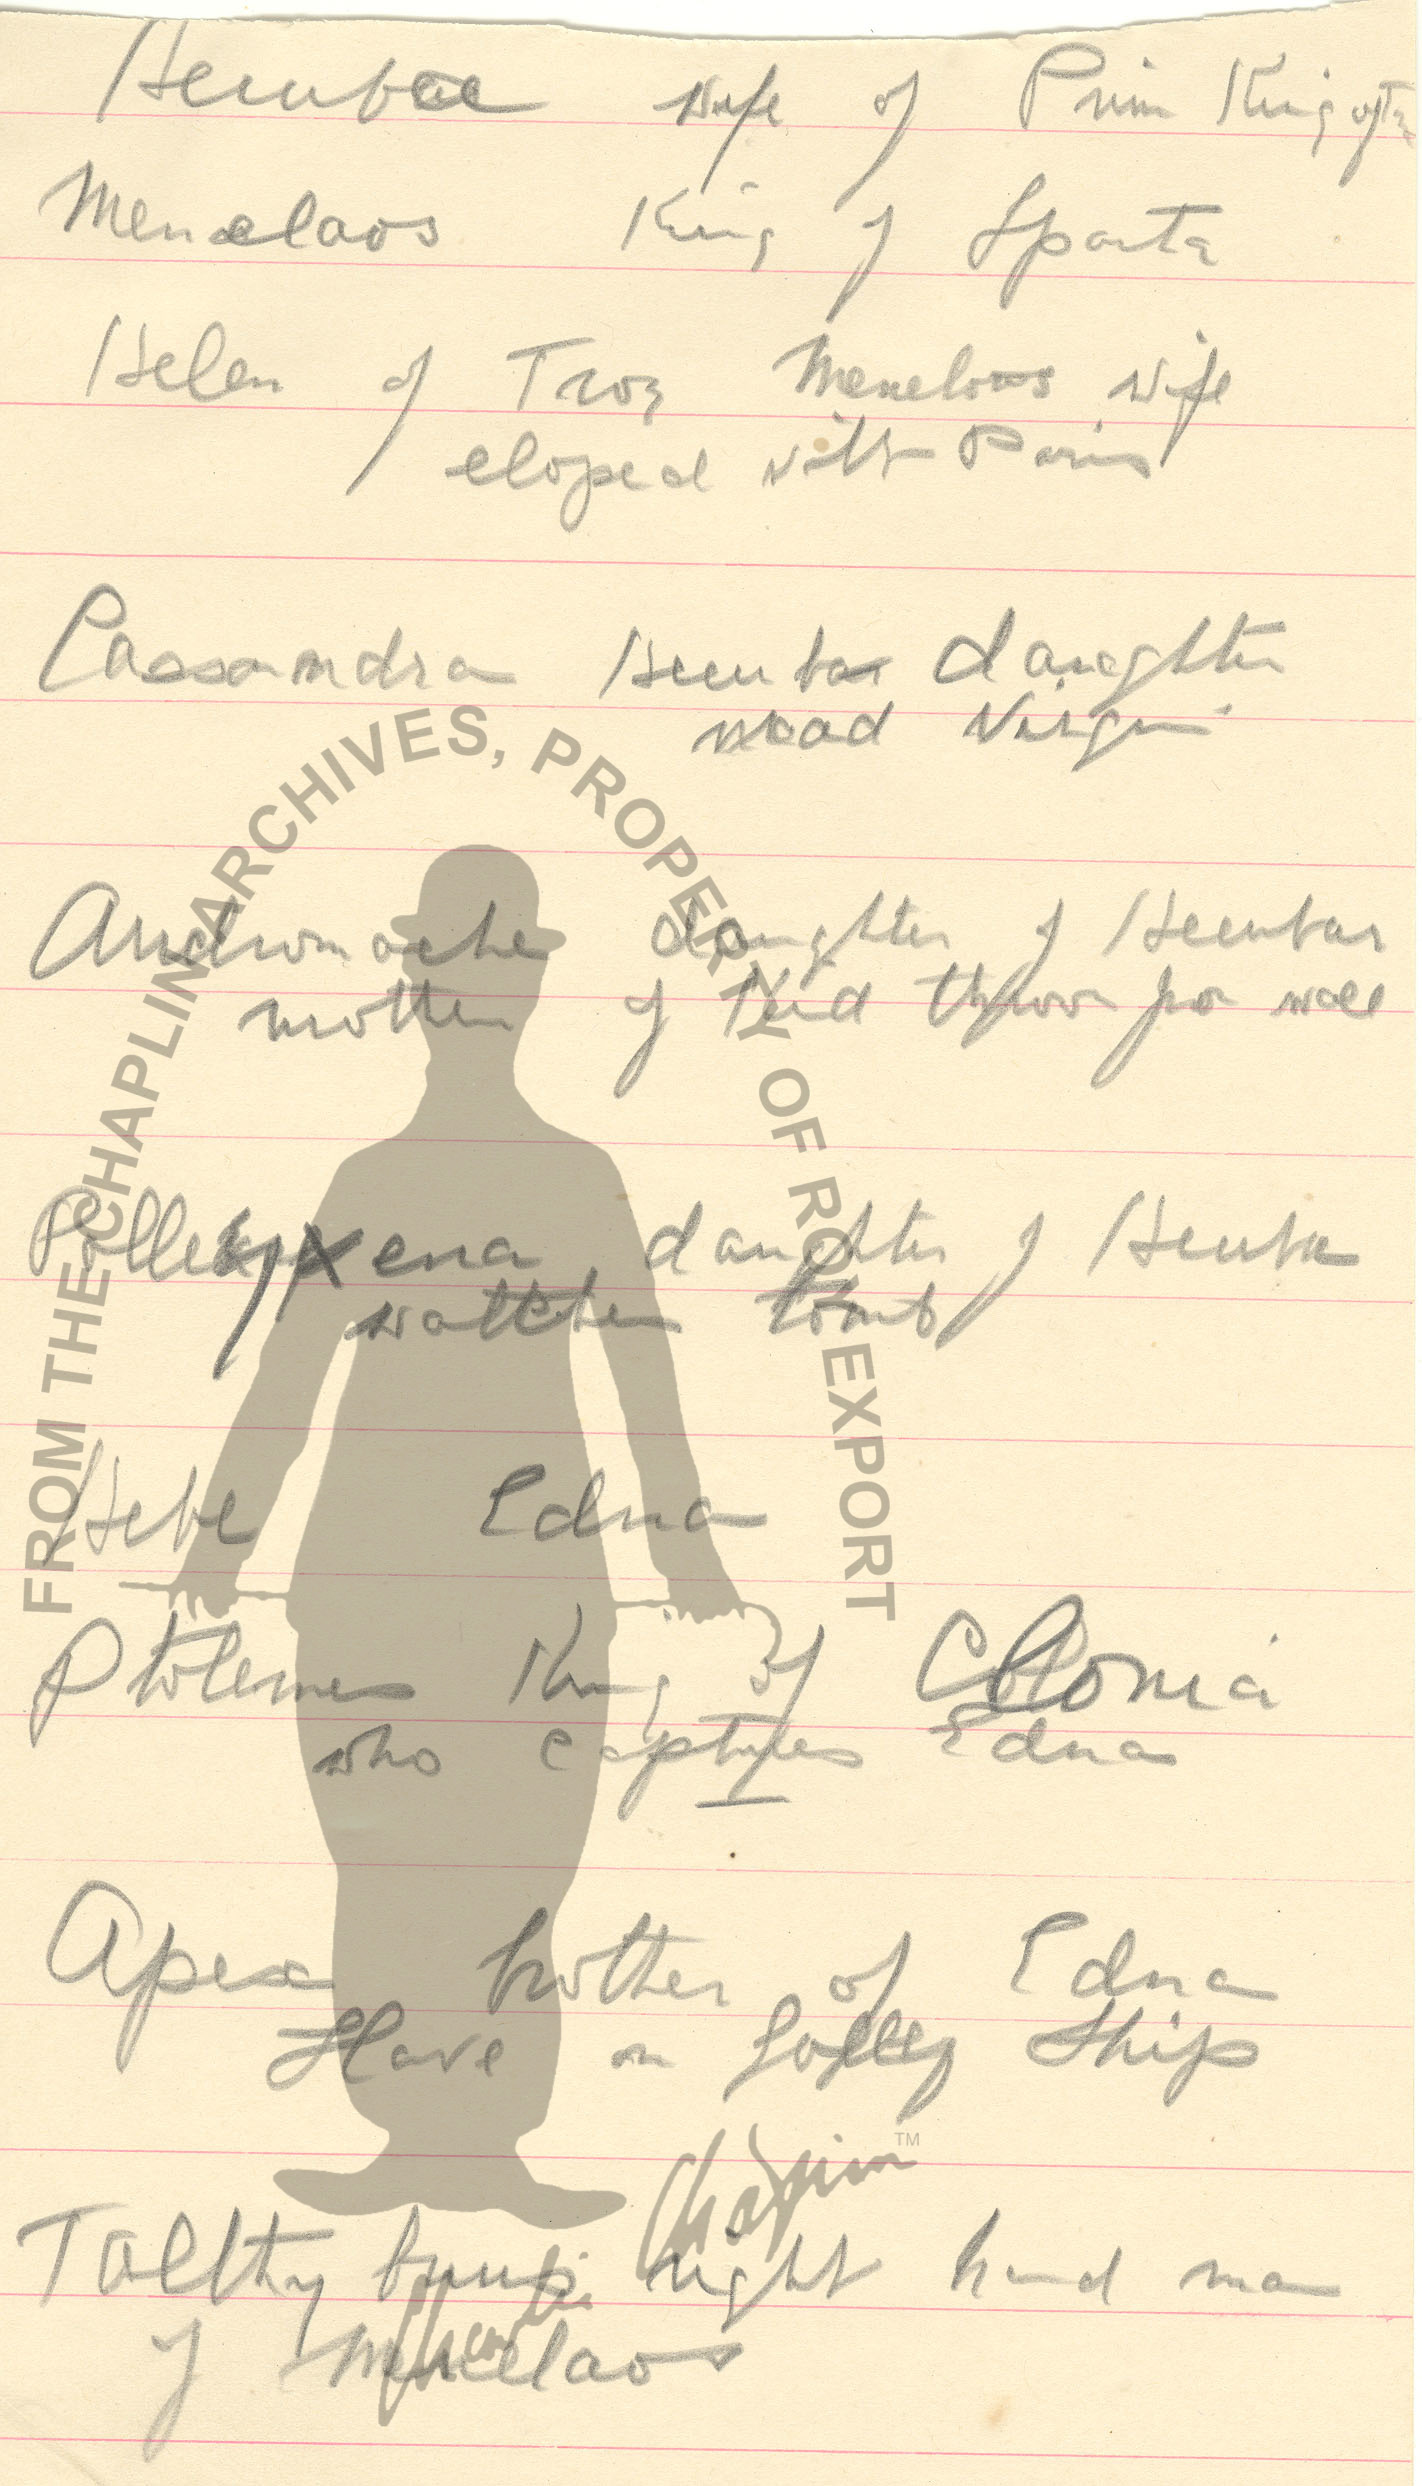 Hecubae wife of Prim King of
Menelaos King of Sparta
Helen of Troy Menelaos wife
eloped with Paris
Cassandra Hecubas daughter
mad Virgin
Andromache daughter of Hecubas
mother of Kid thrown from wall
xena daughter of Hecuba
watches tomb
Hebe Edna
Ptolemes King of Colonia
who captures Edna
Apex brother of Edna
Slave on Galley Ship
Talthybius right hand man
of Menelaos
FROM THE CHAPLIN ARCHIVES, PROPERTY OF ROY EXPORT
Charlie Chaplin TM